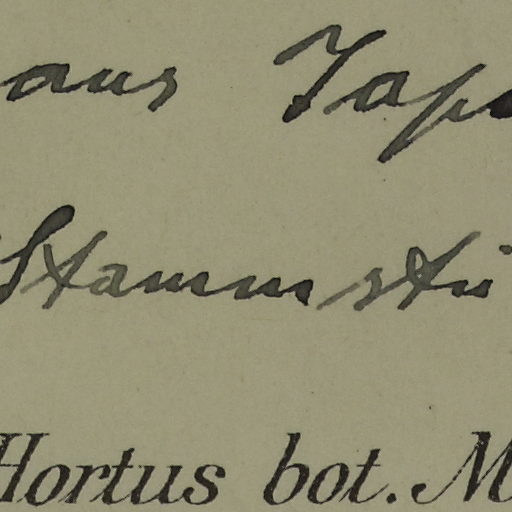 aus Jap
Stammstü
Hortus bot. M